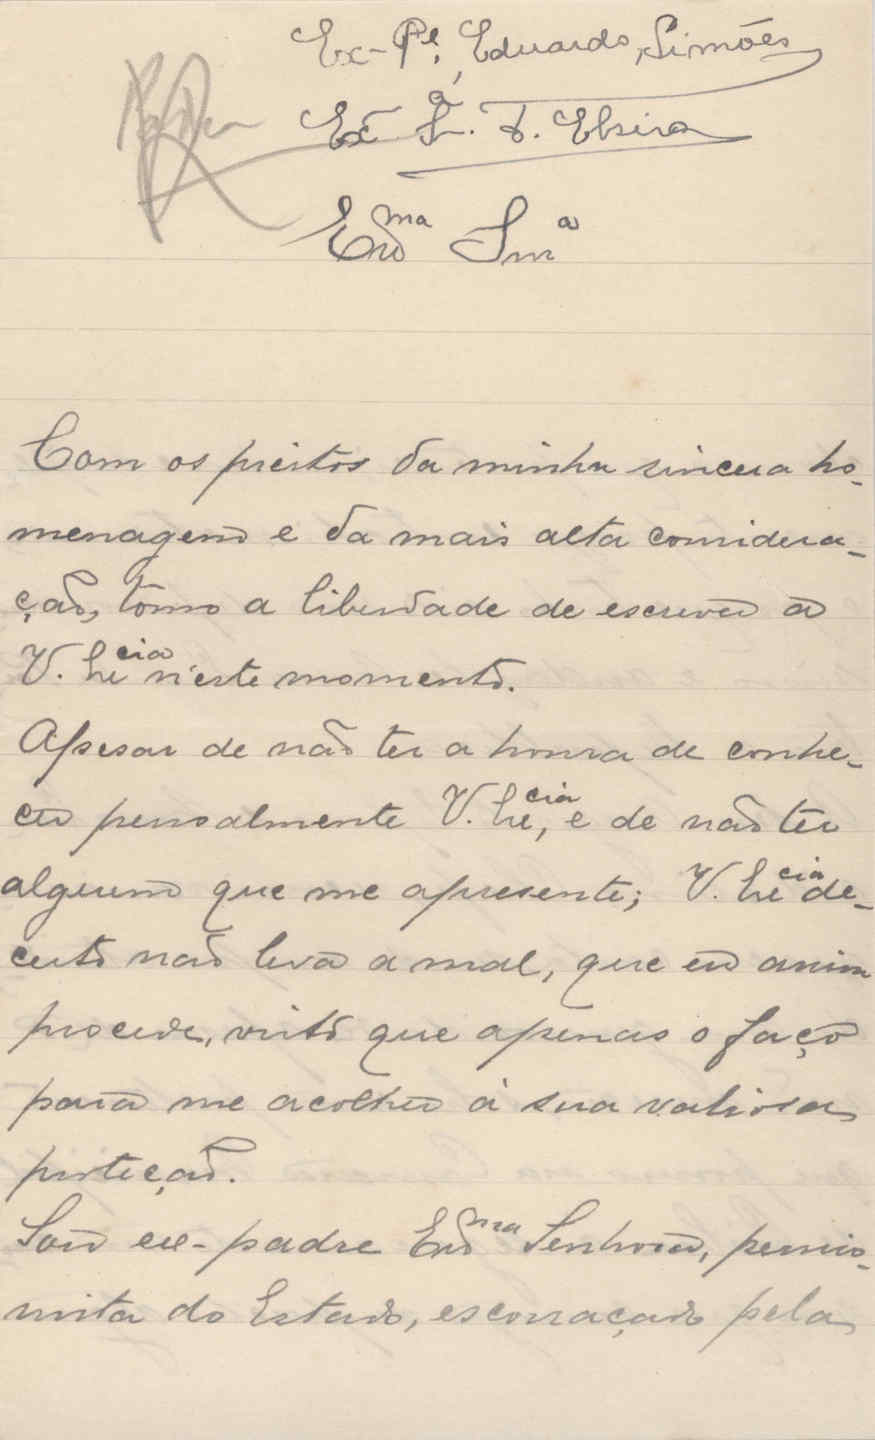 Ex-Pe. Eduardo Simões
á
Exª Srª. D. Elzira
Exma Snrª
Com os preitos da minha sincera ho-
menagem e da mais alta considera-
ção, tômo a liberdade de escrever a
V. Excia n'este momento.
Apesar de não ter a honra de conhe-
cer pessoalmente V. Excia, e de não ter
alguem que me apresente; V. Excia de-
certo não leva a mal, que eu assim
proceda, visto que apenas o faço
para me acolher á sua valiosa
proteção.
Sou ex-padre Exma Senhora, pensio-
nista do Estado, escorraçado pela